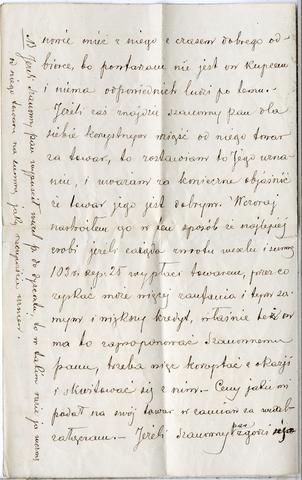 nomie mieć z niego z czasem dobrego od-
biorcę, bo pontażam nie jest on Kupcem
i niema odpowiednich ludzi po temu. -
Jeżeli zaś znajdzie szanowny pan dla
siebie korzystnym wziąść od niego towar
za towar, to zostawiam to Jego uzna-
niu, i uważam za konieczne objaśnić
że towar jego jest dobrym. Wczoraj
nastroiłem go w ten sposób że najlepiej
zrobi jeżeli zażąda zwrotu wexlu i sumę
103 wypłaci towarem, przez co
zyskać może więcej zaufania i tym sa-
mym i większy kredyt, właśnie też on
ma to zaproponować Szanownemu
panu, trzeba więc korzystać z okazji
i skwitować się z nim. - Ceny jakie mi
podał na swój towar w zamian za
załączam. - Jeżeli Szanowny pan zgodzi się
Jeżeli Szanowny pan wypuścił to w takim razie ja wezmę
od niego towaru na sumę jaką